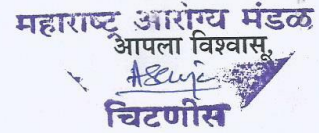 महाराष्ट्र आरोग्य मंडळ
आपला विश्वासू,
चिटणीस